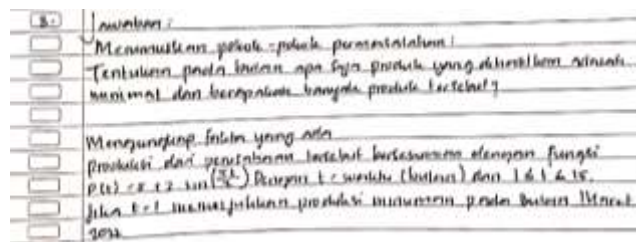 3. Jawaban :
Merumuskan pokok-pokok permasalahan :
Tentukan pada bulan apa saja produk yang dihasilkan adalah
minimal dan berapakah banyak produk tersebut ?
Mengungkap fakta yang ada
produksi dari perusahaan tersebut bersesuaian dengan fungsi
P(t) = 2 sin Dengan t = waktu (bulan) dan 1 ≤ t ≤ 15.
Jika t=1 menunjukkan produksi minimum pada bulan Maret